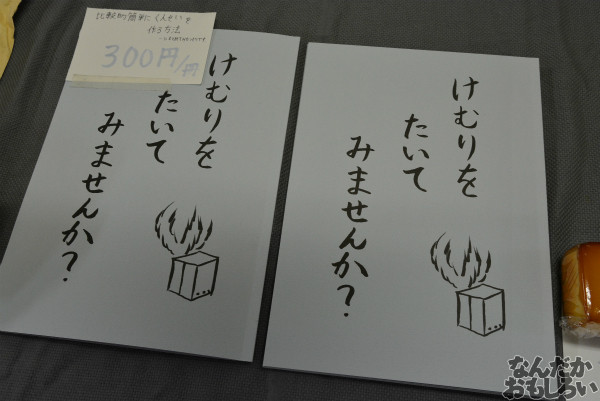 比較的簡単にくんせいを
作る方法
300円/円
けむりを
たいて
みませんか?
けむりを
たいて
みませんか?
なんだか
おもしろい